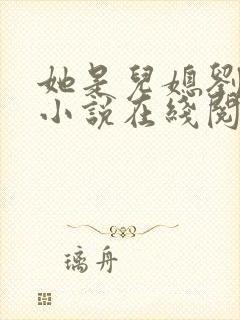 她是兒媳劉
小說在綫閱
璃舟